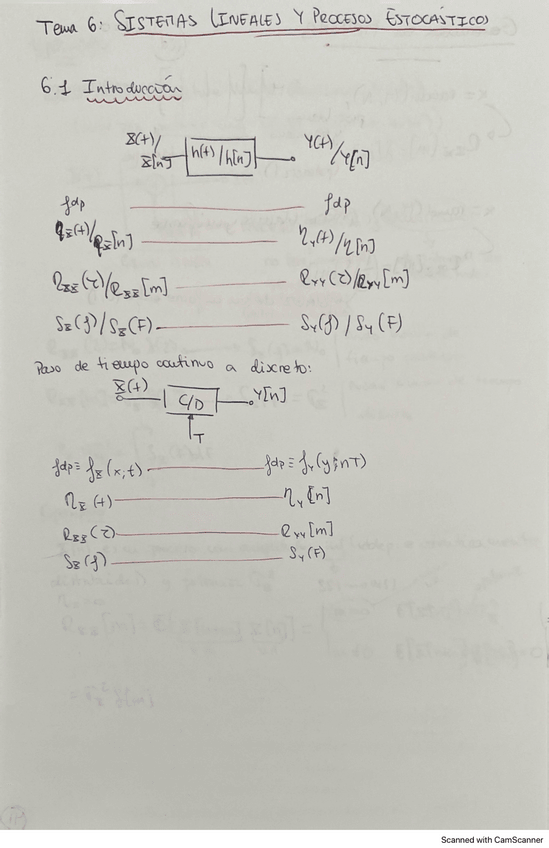 Tema 6: SISTEMAS LINEALES Y PROCESOS ESTOCÁSTICOS
6.1 Introducción
X(t)/X[n] h(t)/h[n] Y(t)/Y[n]
fdp fdp
η_X(t)/η_X[n] η_Y(t)/η[n]
R_XX(τ)/R_XX[m] R_YY(τ)/R_YY[m]
S_X(f)/S_X(F) S_Y(f)/S_Y(F)
Paso de tiempo continuo a discreto:
X(t) C/D Y[n]
T
fdp≡ f_X(x,t) fdp≡ f_Y(y;nT)
η_X(t) η_Y[n]
R_XX(τ) R_YY[m]
S_X(f) S_Y(F)
Scanned with CamScanner